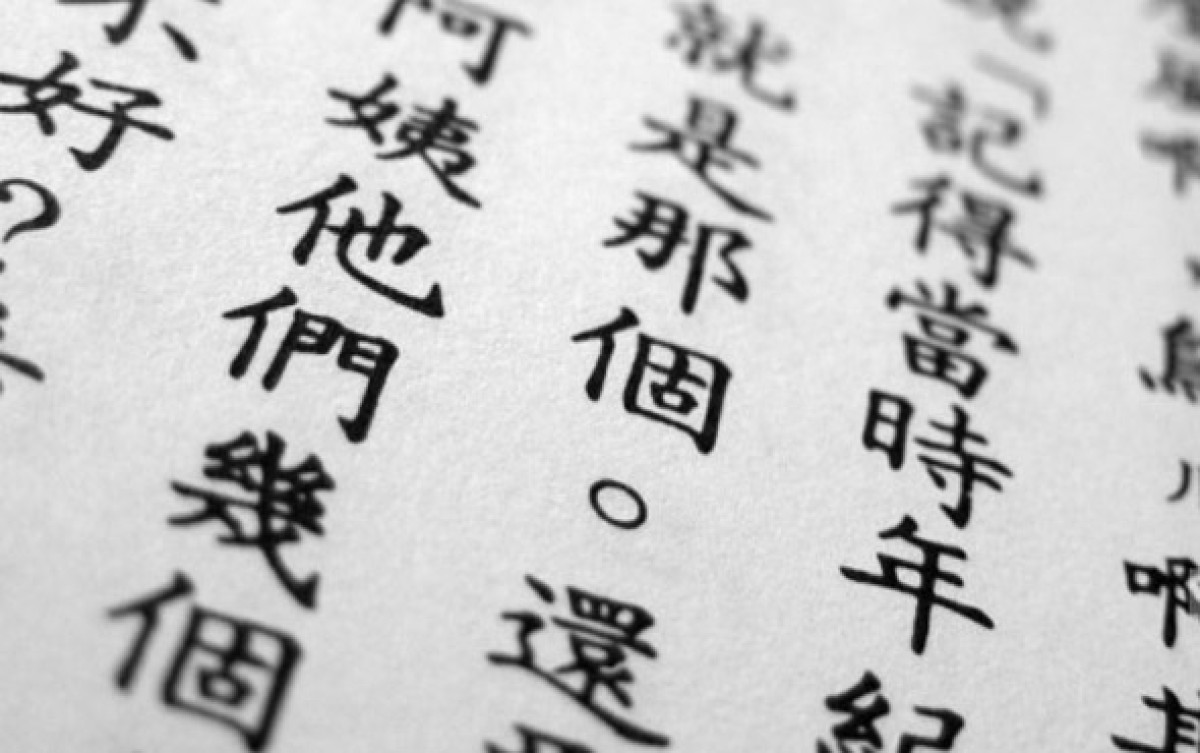 啊
「記得當時年紀
就是那個。還
阿姨他們幾個
好?